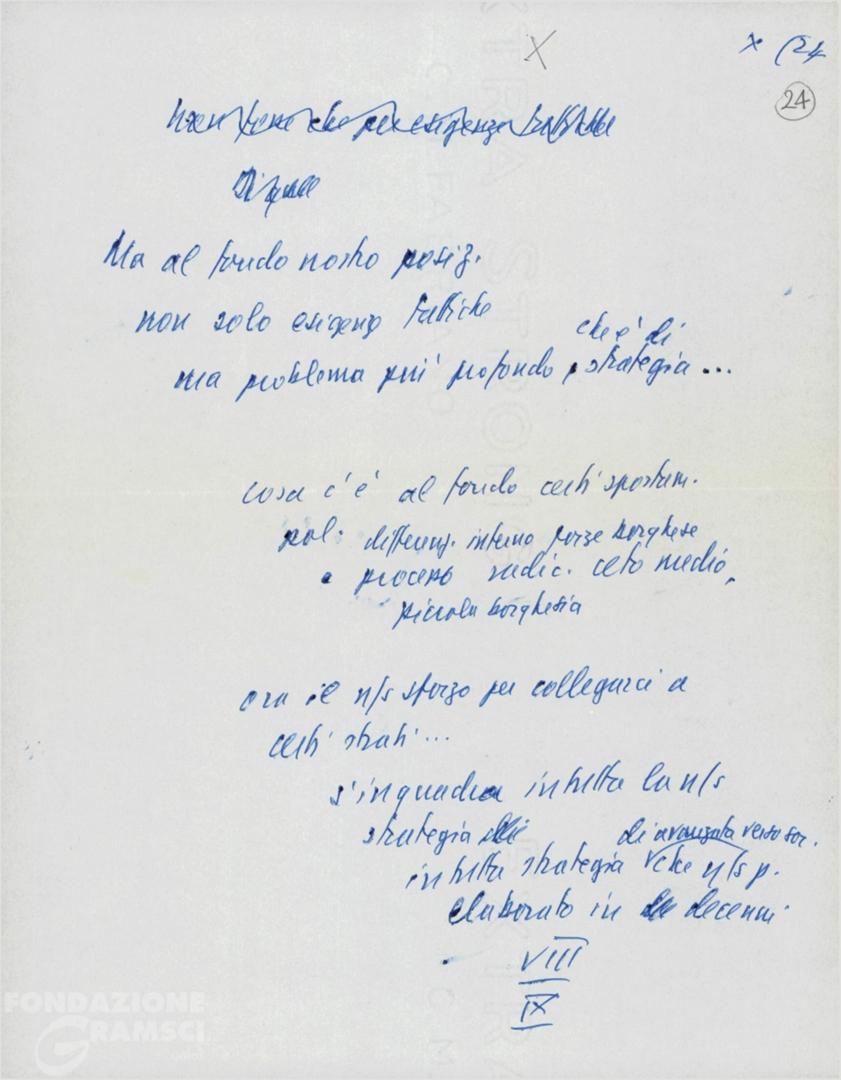 x
x (24
24
non
che per esigenze tattiche
Ma al fondo nostro posiz.
non solo esigenze tattiche
che è di
ma problema più profondo, strategia ...
cosa c'è al fondo certi spostam.
pol. differenz. interno forze borghese
• processo radic. ceto medio,
piccola borghesia
ora il n/s sforzo per collegarci a
certi strati ...
s'inquadra in tutta la n/s
strategia
di avanzata verso soc.
in tutta strategia che n/s p.
elaborato in decenni
VIII
IX
FONDAZIONE
GRAMSCI